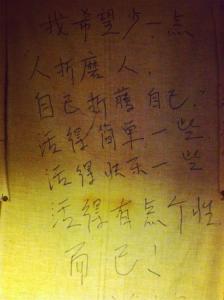 我希望少一点
人折磨人，
自己折磨自己。
活得简单一些
活得快乐一些
活得有点个性
而已！